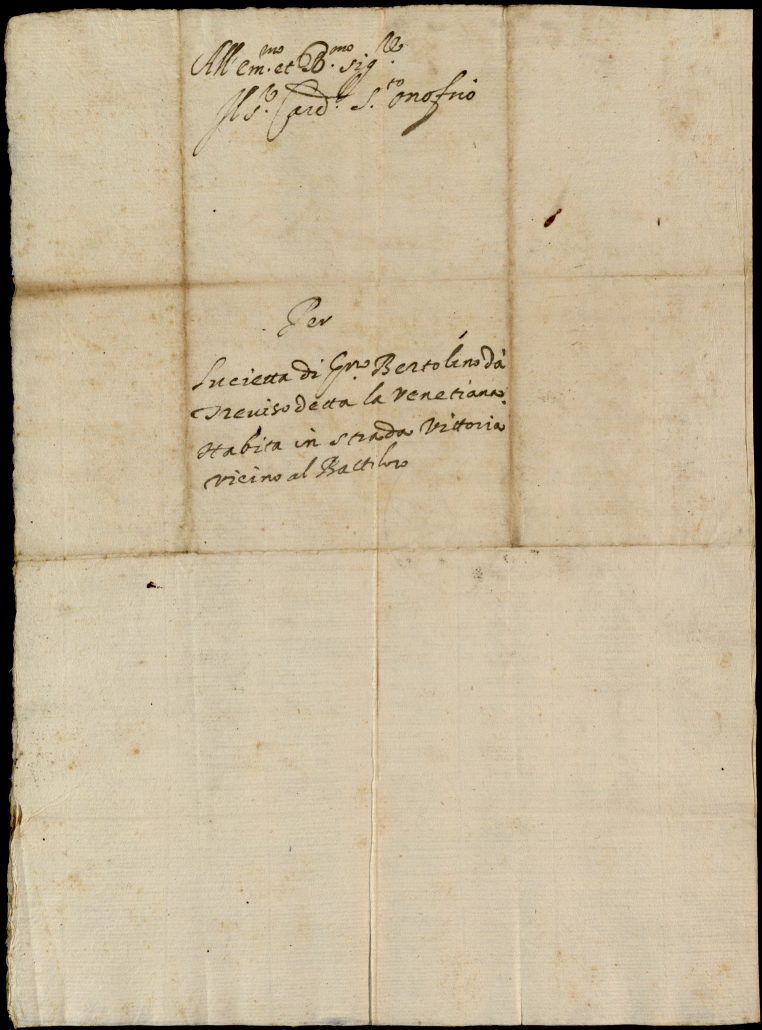 All'em.mo et R.mo sig.re
Il s.r Card. S.to onofrio
Per
Lucietta di Gio Bertolino dà
Treviso detta la Venetiana
Habita in strada Vittoria
vicino al Battiloro